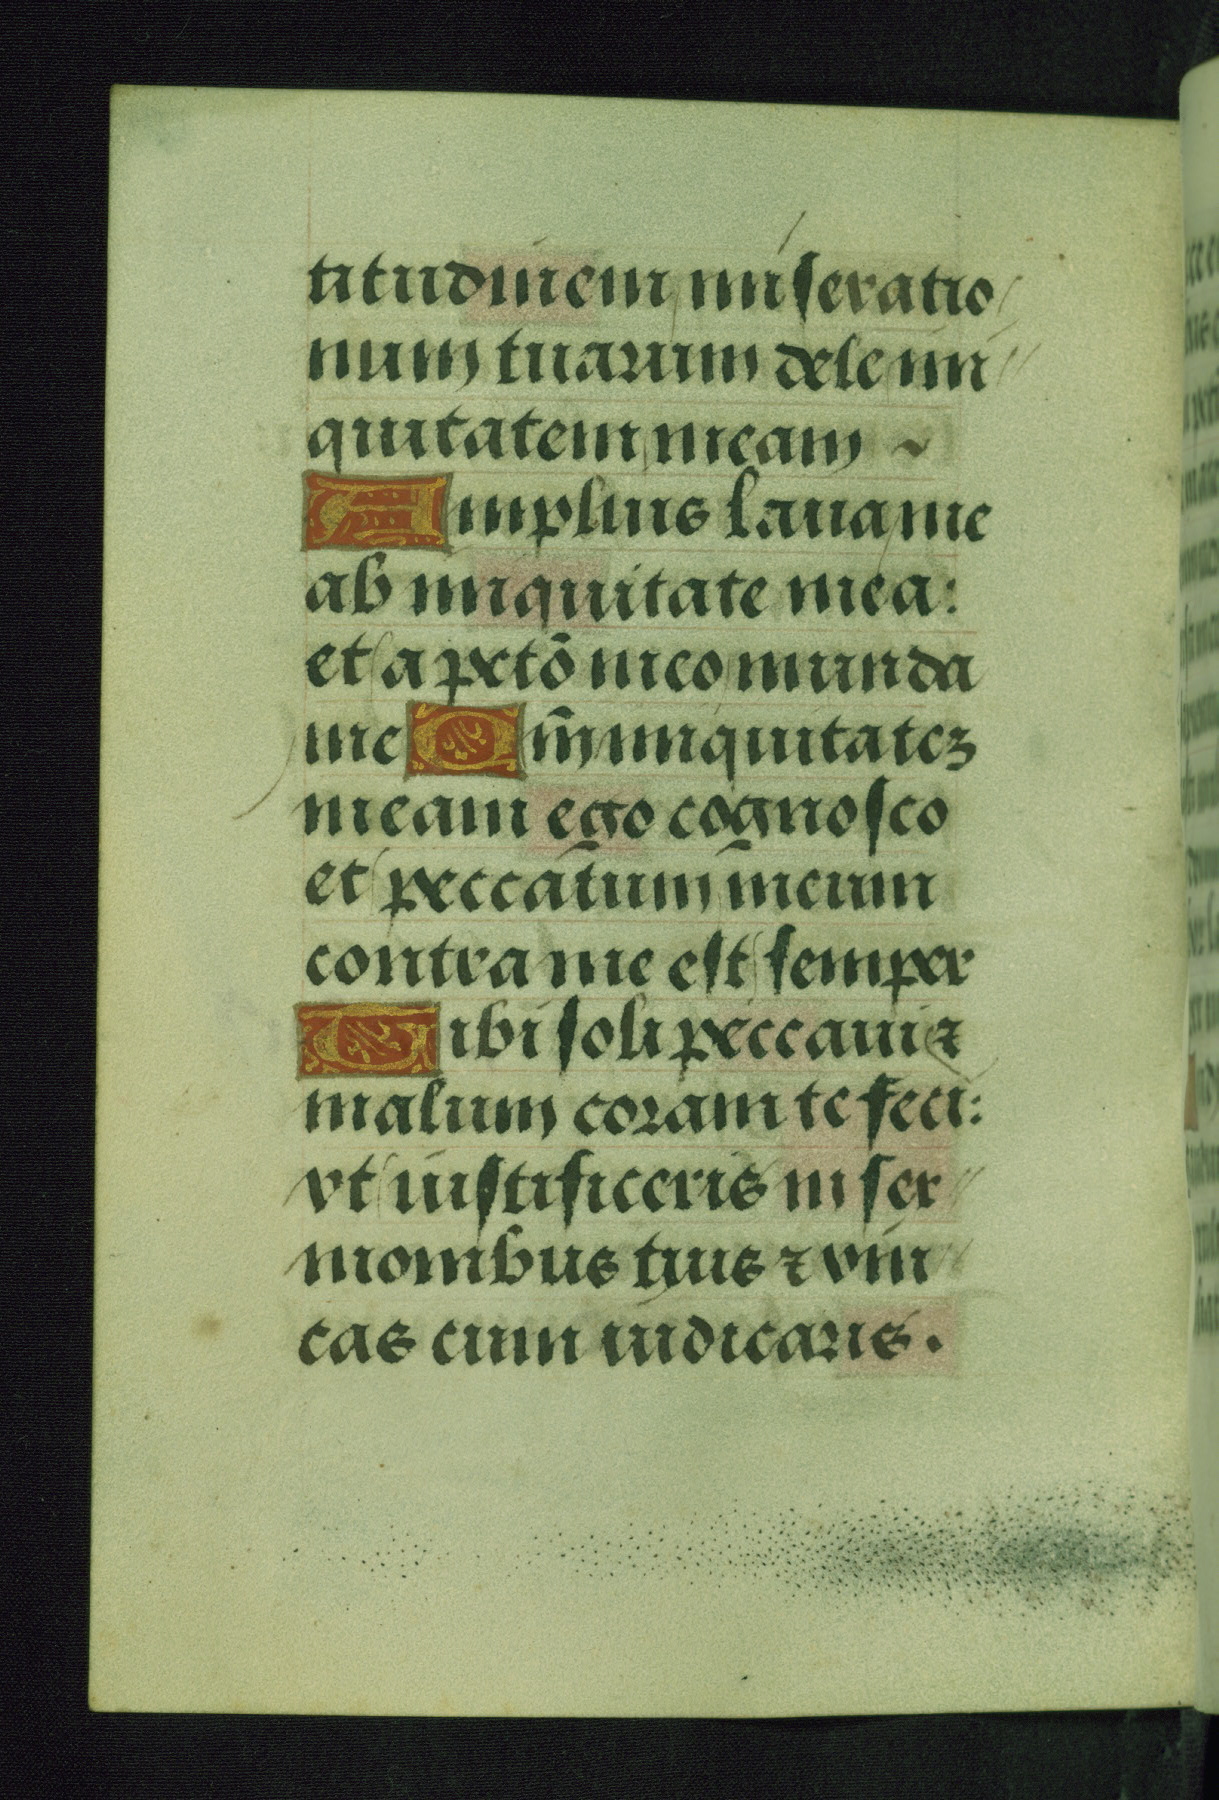 titudinem miseratio
num tuarum dele ini
quitatem meam ~
Amplius lava me
ab iniquitate mea:
et a pctō meo munda
me Qm̄ iniquitateȝ
meam ego cognosco
et peccātum m̄eum
contra me est semper
Tibi soli peccaui ⁊
malum coram te feci:
vt iustificeris in ser
monibus tuis ⁊ vin
cas cum iudicaris.